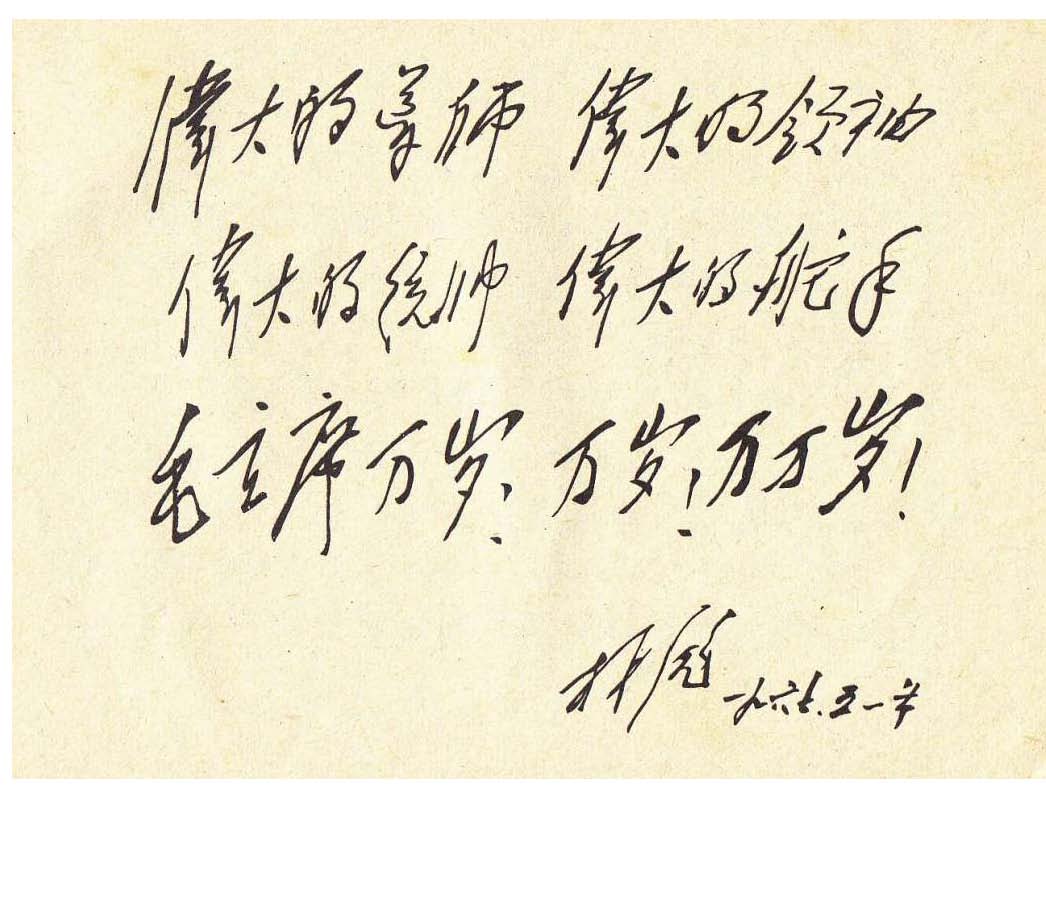 偉大的导师 偉大的领袖
偉大的统帅 偉大的舵手
毛主席万岁！万岁！万万岁！
林彪 一九六七.五一节